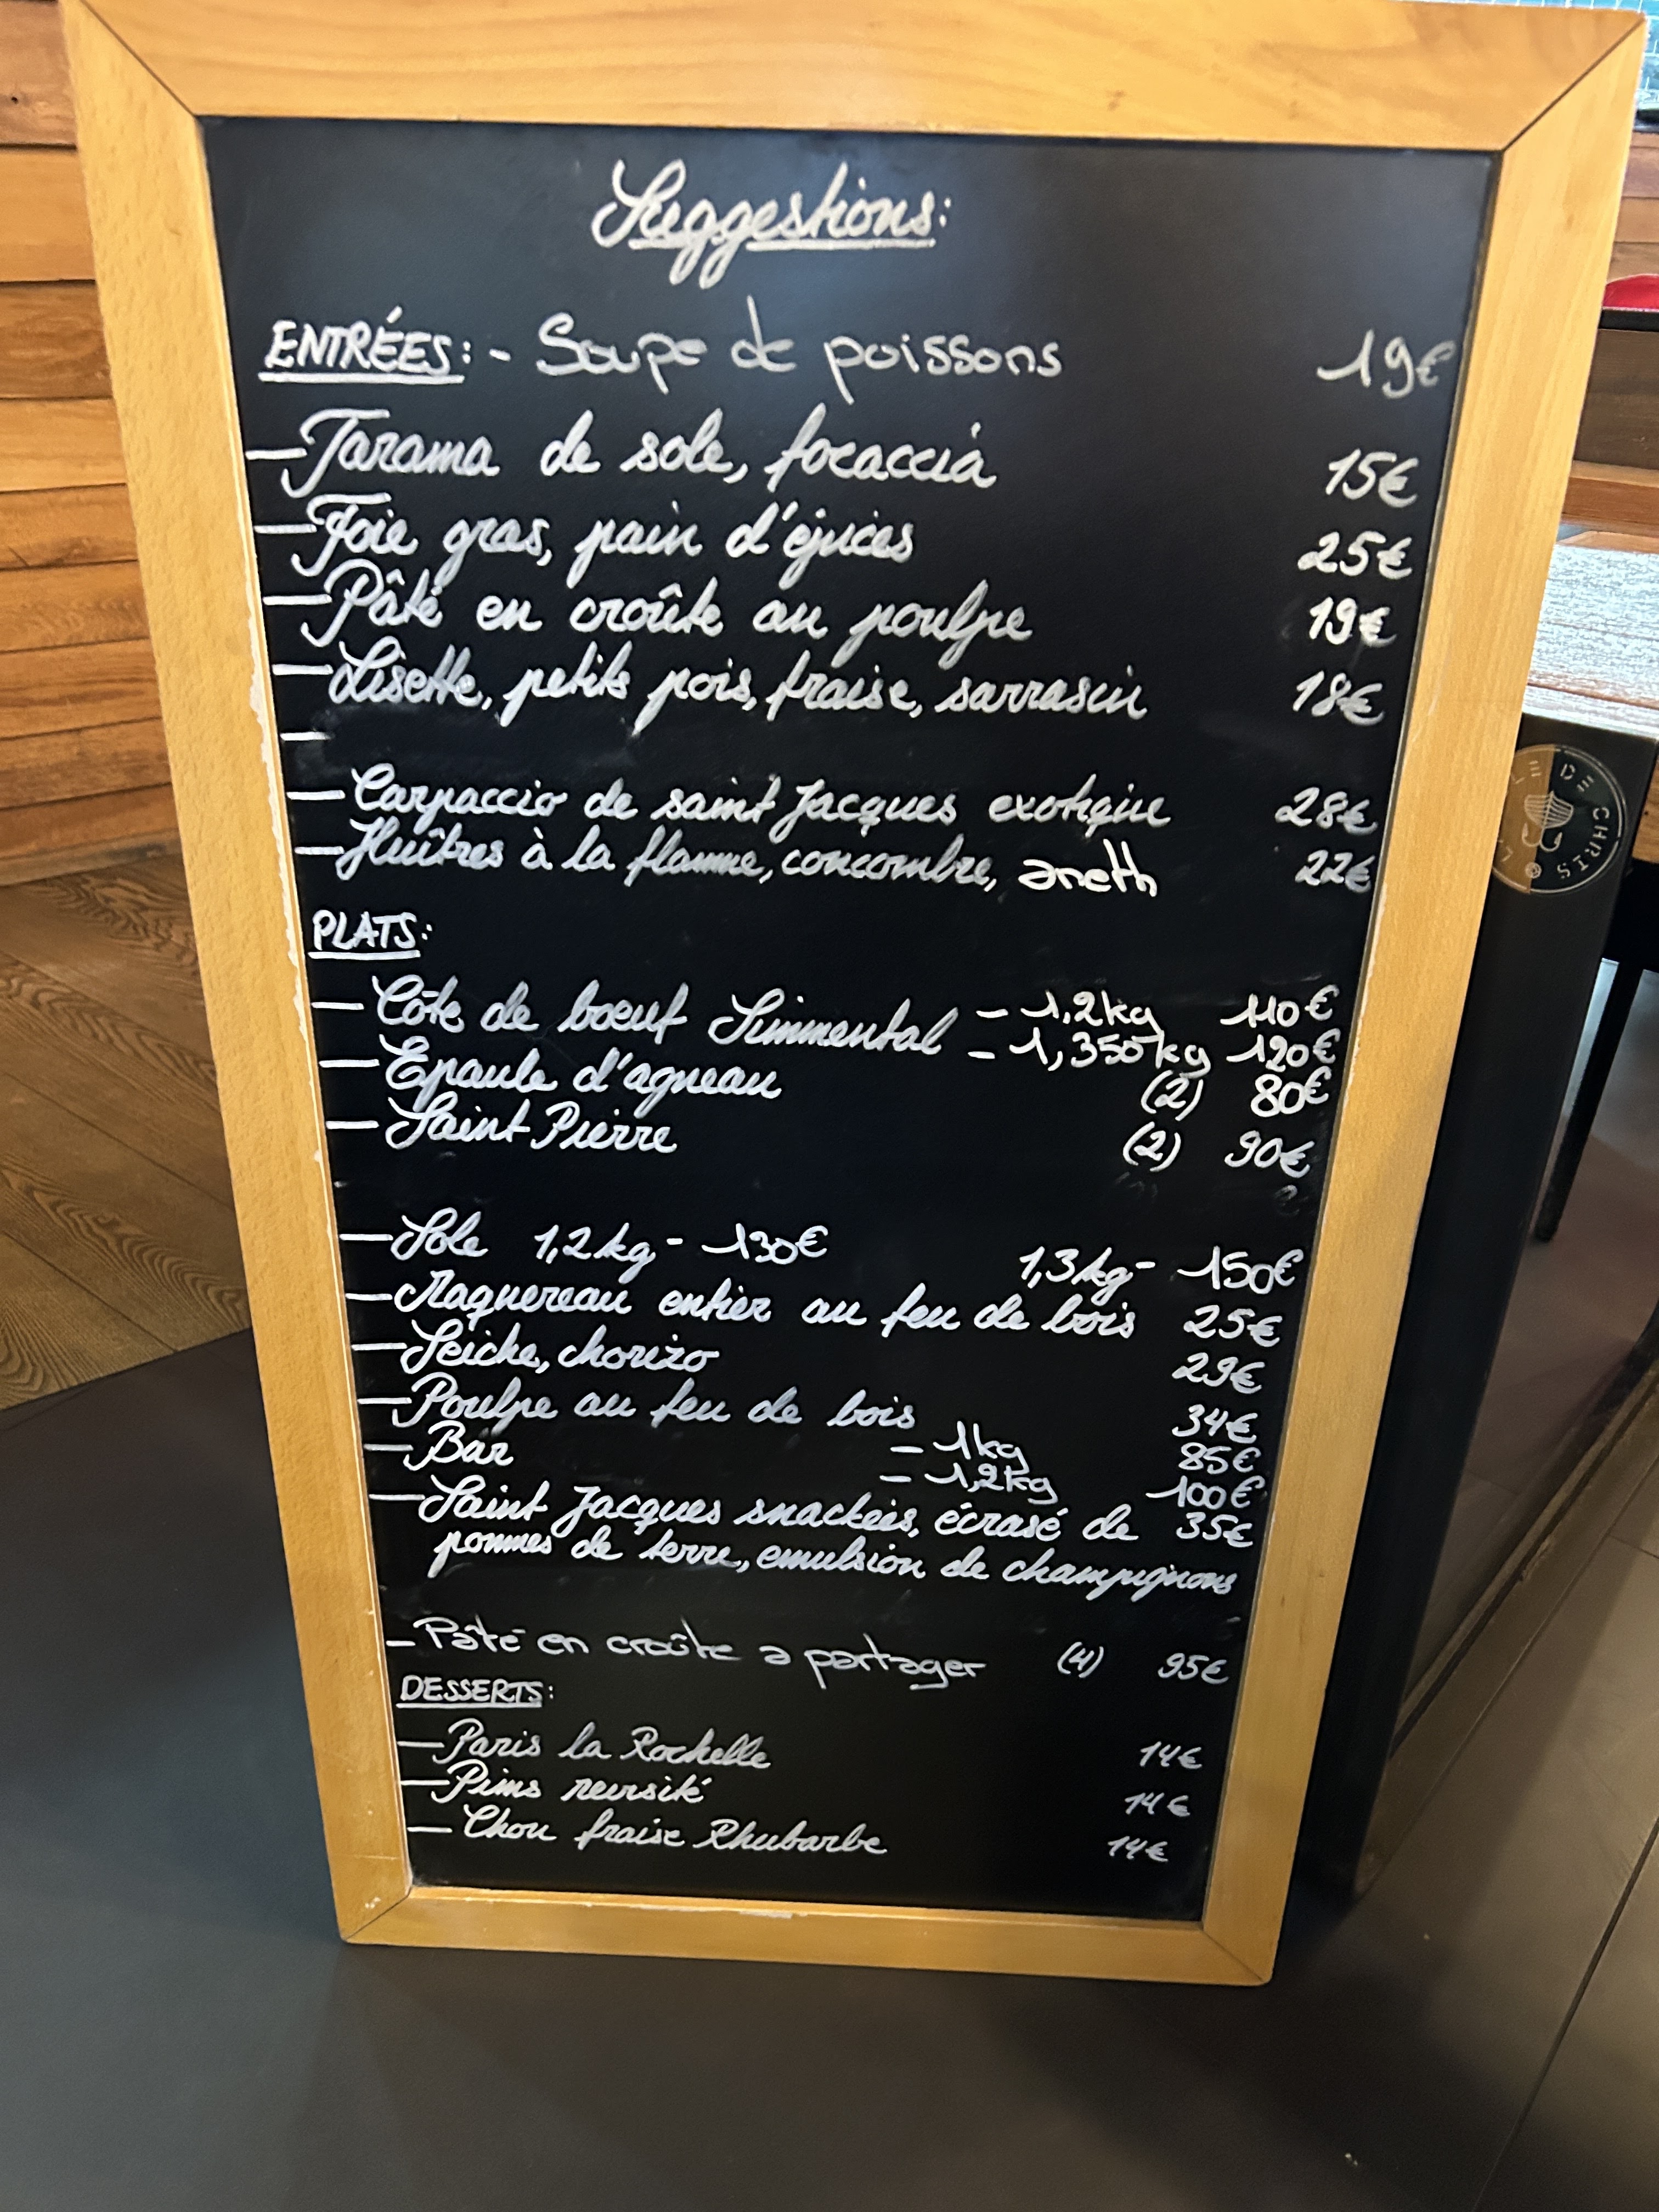 Suggestions:
ENTRÉES: - Soupe de poissons 19€
— Tarama de sole, focaccia 15€
— Foie gras, pain d'épices 25€
— Pâté en croûte au poulpe 19€
— Lisette, petits pois, fraise, sarrasin 18€
—
— Carpaccio de saint Jacques exotique 28€
— Huîtres à la flamme, concombre, aneth 22€
PLATS:
— Côte de boeuf Simmental - 1,2kg 110€
- 1,350kg 120€
— Epaule d'agneau (2) 80€
— Saint Pierre (2) 90€
— Sole 1,2kg - 130€ 1,3kg - 150€
— Maquereau entier au feu de bois 25€
— Seiche, chorizo 29€
— Poulpe au feu de bois 34€
— Bar - 1kg 85€
- 1,2kg 100€
— Saint Jacques snackées, écrasé de 35€
pommes de terre, emulsion de champignons
- Pâté en croûte a partager (4) 95€
DESSERTS:
— Paris la Rochelle 14€
— Pims revisité 14€
— Chou fraise Rhubarbe 14€
DE CHRIS